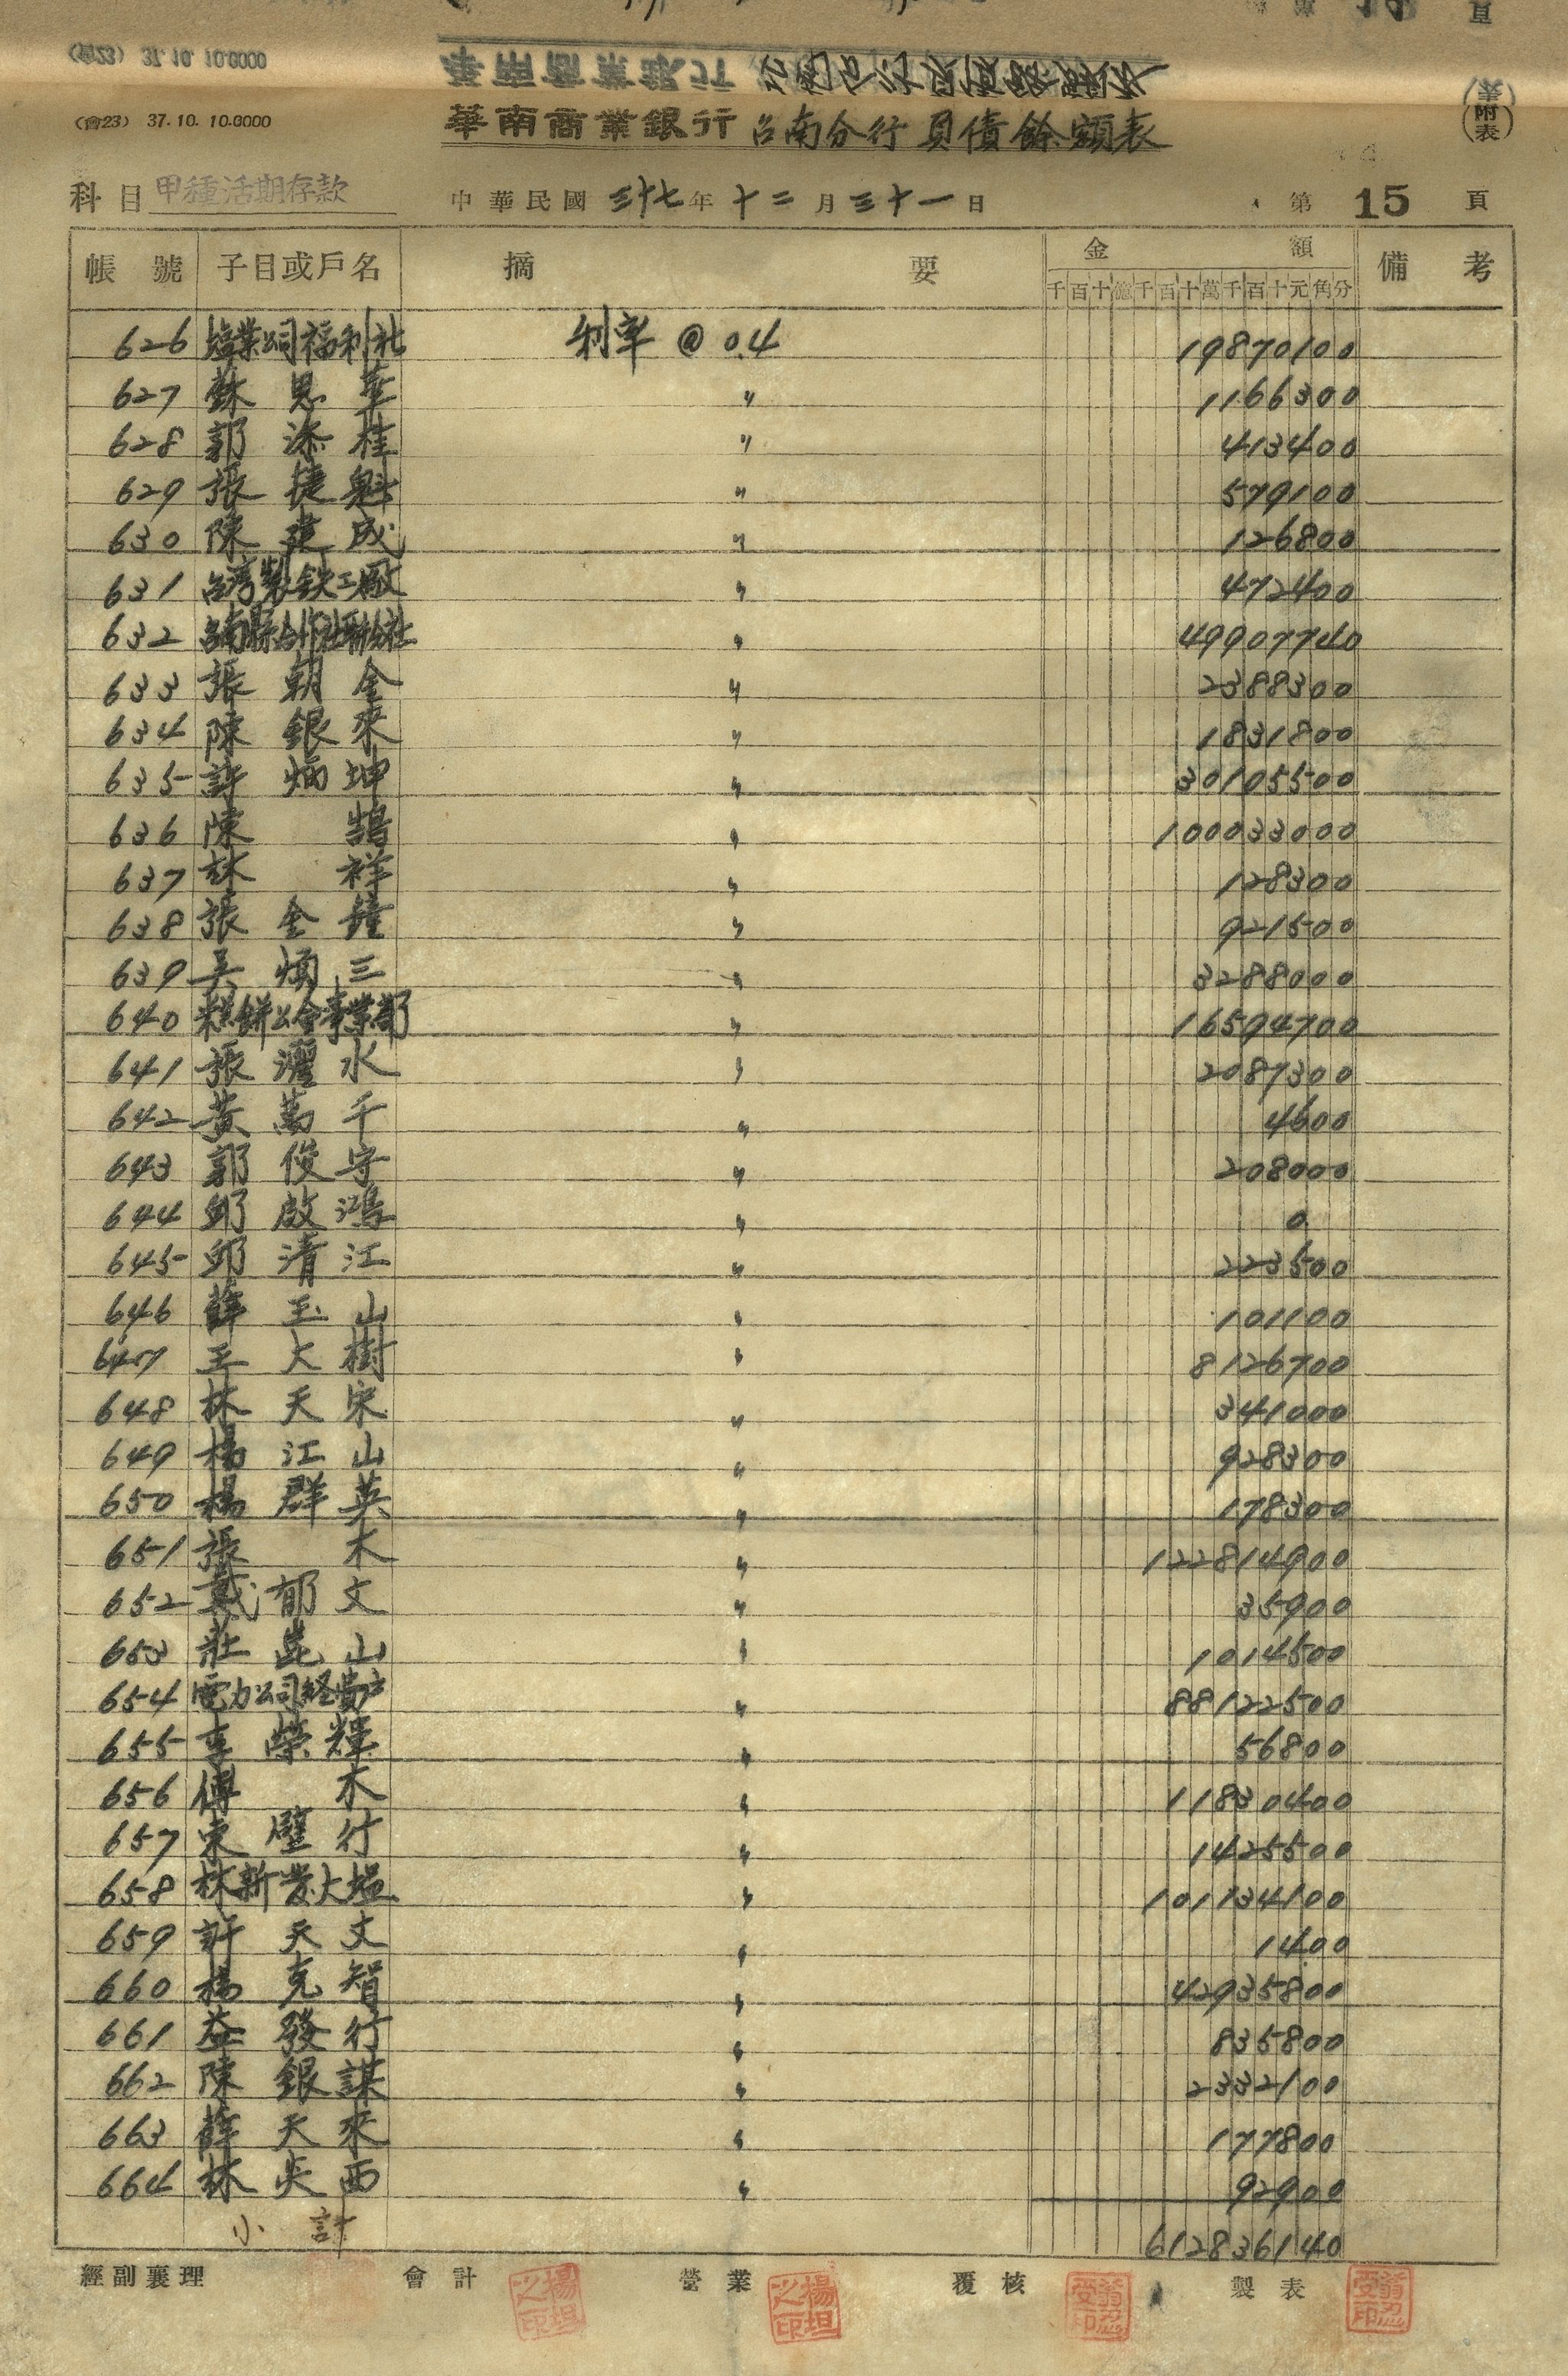 (會23) 37.10.10.6000
華南商業銀行台南分行負債餘額表
(附表)
科目 甲種活期存款 中華民國三十七年十二月三十一日 第 15 頁
帳號 子目或戶名 摘要 金額 備考
千百十億千百十萬千百十元角分
626 塩業公司福利社 利率 @ 0.4 19870100
627 蘇思華 〃 1166300
628 郭添桂 〃 413400
629 張捷魁 〃 579100
630 陳建成 〃 126800
631 台湾製鉄工廠 〃 472400
632 台南縣合作社聯合社 〃 49907740
633 張朝全 〃 2388300
634 陳銀來 〃 1831800
635 許炳坤 〃 30105500
636 陳鵠 〃 100033000
637 林祥 〃 128300
638 張金鐘 〃 921500
639 吳炳三 〃 3288000
640 糕餅公會事業部 〃 16594700
641 張水 〃 2087300
642 黃萬千 〃 4600
643 郭俊守 〃 208000
644 鄭啟鴻 〃 0
645 邱清江 〃 223500
646 薛玉山 〃 101100
647 王大樹 〃 8126700
648 林天宋 〃 341000
649 楊江山 〃 928300
650 楊群英 〃 178300
651 張木 〃 122814900
652 戴郁文 〃 35900
653 莊崑山 〃 1014500
654 電力公司経費戶 〃 88122500
655 李榮輝 〃 56800
656 傅木 〃 11830400
657 東壁行 〃 1425500
658 林新發大塭 〃 101134100
659 許天文 〃 1400
660 楊克智 〃 42935800
661 益發行 〃 835800
662 陳銀謀 〃 2332100
663 薛天來 〃 177800
664 林西 〃 92900
小計 612836140
經副襄理 會計 營業 覆核 製表
楊坦之印 楊坦之印